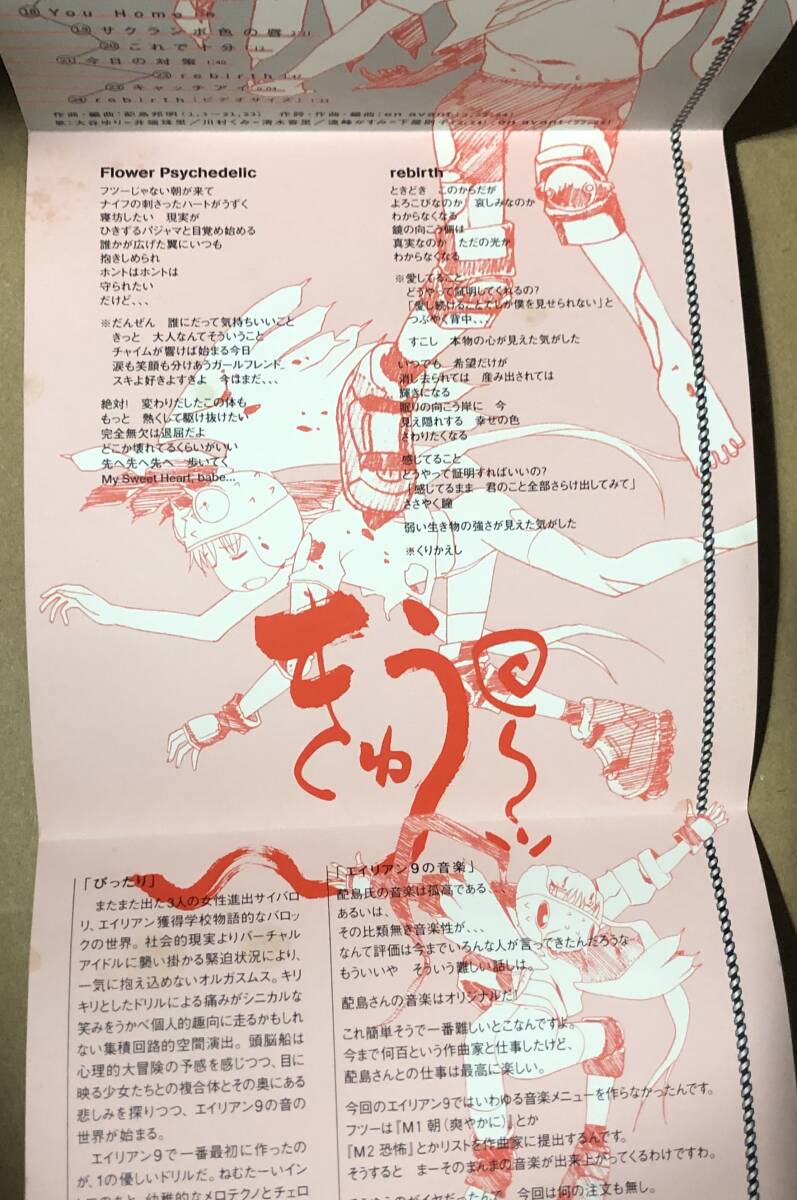 18 You Home
19 サクランボ色の唇 2:21
20 これで十分
21 今日の対策 1:40
22 rebirth 1:47
23 キャッチアイ 0:04
24 rebirth (ビデオサイズ) 1:31
Flower Psychedelic
フツーじゃない朝が来て
ナイフの刺さったハートがうずく
寝坊したい　現実が
ひきずるパジャマと目覚め始める
誰かが広げた翼にいつも
抱きしめられ
ホントはホントは
守られたい
だけど、、、
※だんぜん　誰にだって気持ちいいこと
きっと　大人なんてそういうこと
チャイムが響けば始まる今日
涙も笑顔も分けあうガールフレンド
スキよ好きよすきよ　今はまだ、、、
絶対!　変わりだしたこの体も
もっと　熱くして駆け抜けたい
完全無欠は退屈だよ
どこか壊れてるくらいがいい
先へ先へ先へ　歩いてく
My Sweet Heart, babe...
rebirth
ときどき　このからだが
よろこびなのか　哀しみなのか
わからなくなる
鏡の向こう側は
真実なのか　ただの光か
わからなくなる
※愛してること
どうやって証明してくれるの?
「愛し続けることだしか僕を見せられない」と
つぶやく背中、、、
すこし　本物の心が見えた気がした
いつでも　希望だけが
消し去られては　産み出されては
輝きになる
眠りの向こう岸に　今
見え隠れする　幸せの色
さわりたくなる
感じてること
どうやって証明すればいいの?
「感じてるまま　君のこと全部さらけ出してみて」
ささやく瞳
弱い生き物の強さが見えた気がした
※くりかえし
「ぴったり」
またまた出た3人の女性進出サイバロ
リ、エイリアン獲得学校物語的なバロッ
クの世界。社会的現実よりバーチャル
アイドルに襲い掛かる緊迫状況により、
一気に抱え込めないオルガスムス。キリ
キリとしたドリルによる痛みがシニカルな
笑みをうかべ個人的趣向に走るかもしれ
ない集積回路的空間演出。頭脳船は
心理的大冒険の予感を感じつつ、目に
映る少女たちとの複合体とその奥にある
悲しみを探りつつ、エイリアン9の音の
世界が始まる。
エイリアン9で一番最初に作ったの
が、1の優しいドリルだ。ねむたーいイン
「エイリアン9の音楽」
配島氏の音楽は孤高である、、、
あるいは、
その比類無き音楽性が、、、
なんて評価は今までいろんな人が言ってきたんだろうな
もういいや　そういう難しい話しは。
配島さんの音楽はオリジナルだ!
これ簡単そうで一番難しいとこなんですよ。
今まで何百という作曲家と仕事したけど、
配島さんとの仕事は最高に楽しい。
今回のエイリアン9ではいわゆる音楽メニューを作らなかったんです。
フツーは『M1 朝(爽やかに)』とか
『M2 恐怖』とかリストを作曲家に提出するんです。
そうすると　まーそのまんまの音楽が出来上がってくるわけですわ。